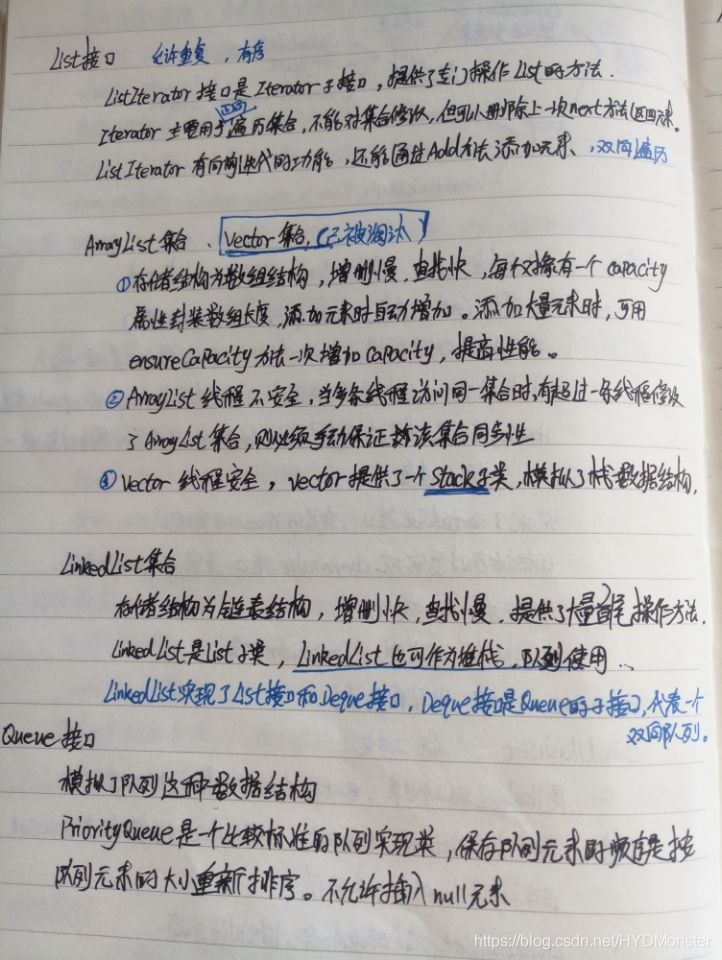 List接口 允许重复，有序
ListIterator 接口是 Iterator 子接口，提供了专门操作 List 的方法.
Iterator 主要用于遍历集合，不能对集合修改，但可以删除上一次next方法返回元素。
ListIterator 有向前迭代的功能，还能通过Add方法添加元素、双向遍历
ArrayList集合、Vector集合（已被淘汰）
①存储结构为数组结构，增删慢，查找快，每个对象有一个 capacity
属性封装数组长度，添加元素时自动增加。添加大量元素时，可用
ensureCapacity方法一次增加capacity，提高性能。
②ArrayList 线程不安全，当多条线程访问同一集合时，有超过一条线程修改
了ArrayList集合，则必须手动保证该集合同步性
③Vector 线程安全，vector提供了一个Stack子类，模拟了栈数据结构.
LinkedList集合
存储结构为链表结构，增删快，查找慢，提供了大量首尾操作方法.
LinkedList是List子类，LinkedList也可作为堆栈，队列使用..
LinkedList实现了List接口和Deque接口，Deque接口是Queue的子接口，代表一个
双向队列。
Queue接口
模拟了队列这种数据结构
PriorityQueue是一个比较标准的队列实现类，保存队列元素的顺序是按
队列元素的大小重新排序。不允许插入null元素
https://blog.csdn.net/HYDMonster